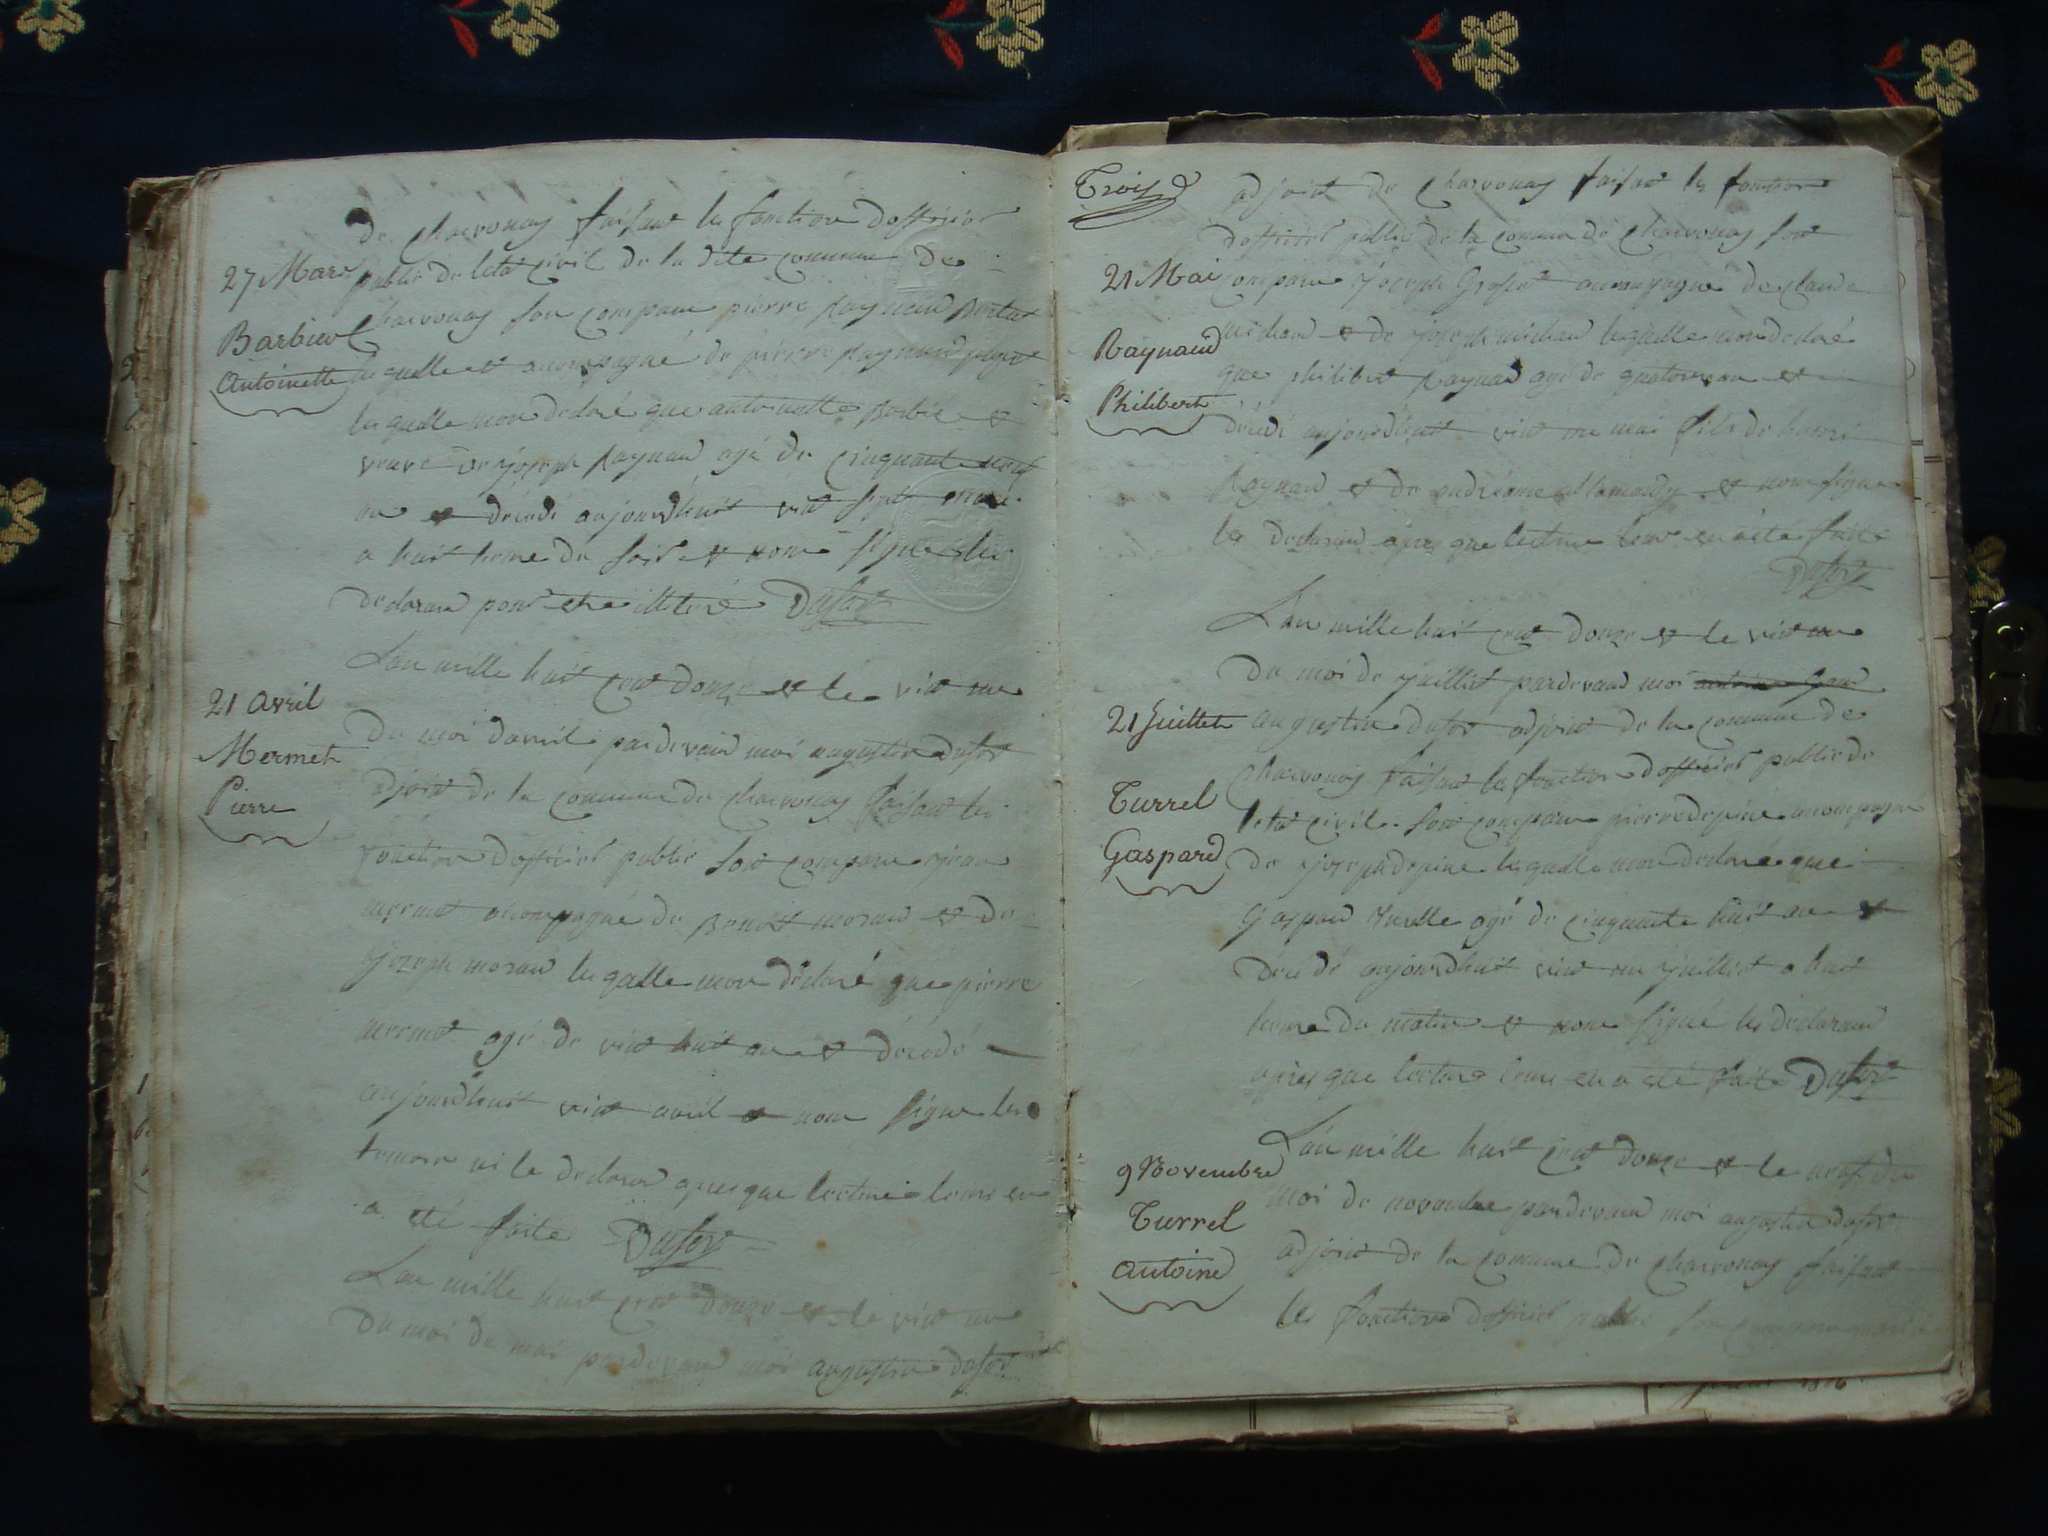 de charvonay faisant les fonction dofficier
27 Mars
public de letat civil de la dite commune de
charvonay son comparu pierre Raynaud
Barbier
Antoinette
lesquelle et accompagné de pierre Raynaud
lesquelle mon declaré que antoinette barbie et
veuve de joseph Raynau agé de cinquante neuf
an et décédé aujourdhuit vint sept mars
a huit heure du soir et nont signe les
declaran pour etre illeteré Dufor
Lan mille huit cent douze et le vint un
21 avril
Du moi davril pardevant moi augustin dufor
Mermet
adjoint de la commune de charvonay faisant les
Pierre
fonction dofficier public son comparu jean
mermet acompagné de Benoit moraud et de
joseph moraud lesqualle mon déclaré que pierre
mermet agé de vint huit an et décédé
aujourdhuit vint avril et nont signe les
temoin ni le declaran apres que lecture leurs en
a eté faite Dufor
Lan mille huit cent douze et le vint un
Du moi de mai pardevant moi augustin dufor
Trois
adjoint de charvonay faisant les fonction
dofficier public de la commune de charvonay sont
21 Mai
comparu joseph Grosset accompagné de claude
Raynaud
michaud et de joseph michaud lesqualle mon declaré
que philibert Raynaud agé de quatorze an et
Philibert
décédé aujourdhuit vint un mai fils de
Raynaud et de et nont signe
les declaran apres que lecture leur en a eté faite
Dufor
Lan mille huit cent douze et le vint un
Du moi de juillet pardevant moi
21 Juillet
augustin dufor adjoint de la commune de
charvonay faisant les fonction dofficier public de
Turrel
letat civil sont comparu pierre depine acompagné
Gaspard
de joseph depine lesqualle mon declaré que
gaspard turelle agé de cinquante huit an et
décédé aujourdhuit vint un juillet a huit
heure du matin et nont signé les declaran
apres que lecture leurs en a eté faite Dufor
Lan mille huit cent douze et le neuf du
9 Novembre
moi de novembre pardevant moi augustin dufor
Turrel
adjoint de la commune de charvonay faisant
Antoine
les fonctions dofficier public son comparu